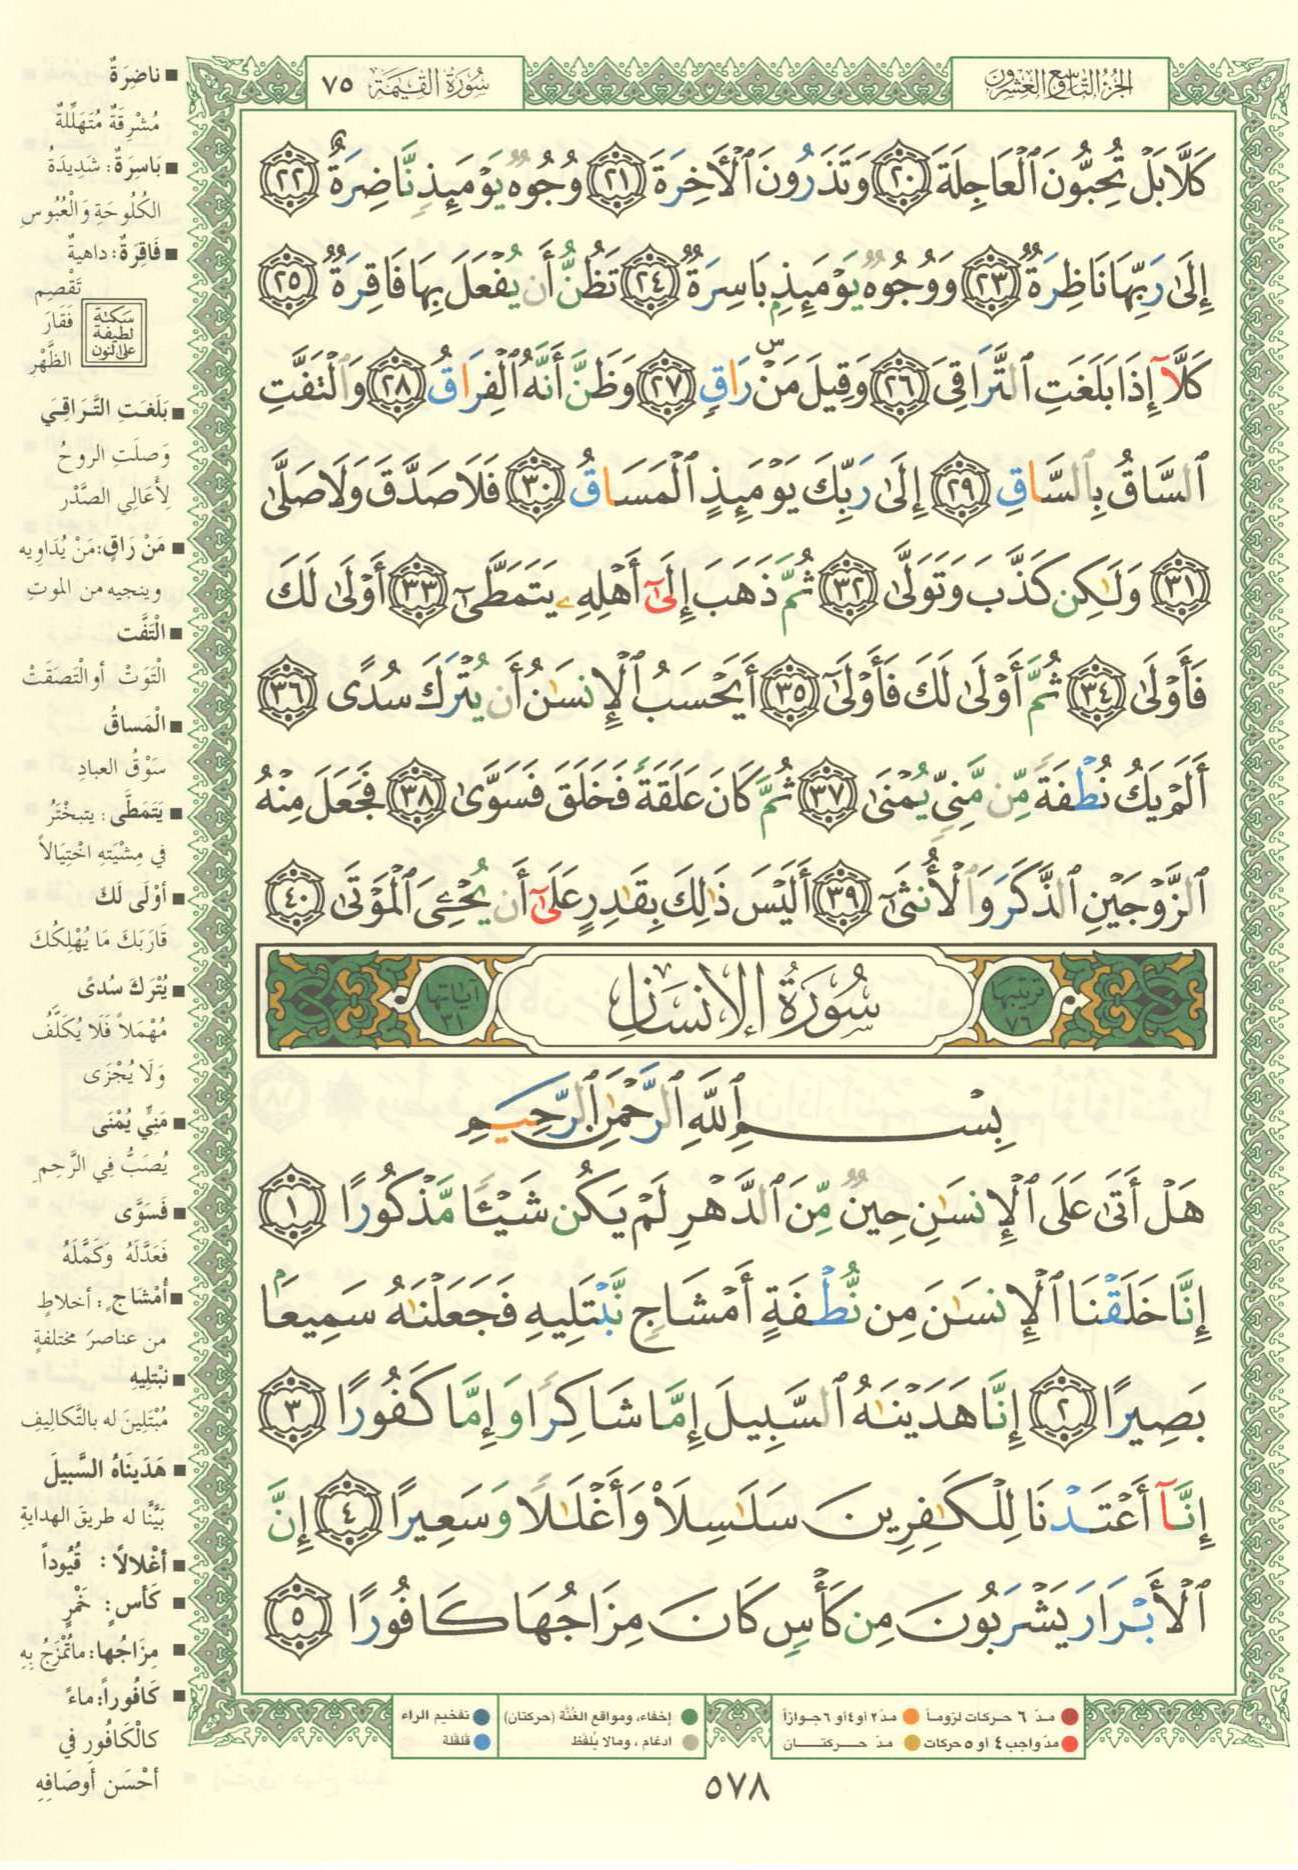 الجزء التاسع والعشرون
سورة القيمة ٧٥
كَلَّا بَلْ تُحِبُّونَ ٱلْعَاجِلَةَ ٢٠ وَتَذَرُونَ ٱلْأَخِرَةَ ٢١ وُجُوهٌ يَوْمَئِذٍ نَّاضِرَةٌ ٢٢
إِلَىٰ رَبِّهَا نَاظِرَةٌ ٢٣ وَوُجُوهٌ يَوْمَئِذٍ بَاسِرَةٌ ٢٤ تَظُنُّ أَن يُفْعَلَ بِهَا فَاقِرَةٌ ٢٥
كَلَّآ إِذَا بَلَغَتِ ٱلتَّرَاقِىَ ٢٦ وَقِيلَ مَنْ ۜ رَاقٍ ٢٧ وَظَنَّ أَنَّهُ ٱلْفِرَاقُ ٢٨ وَٱلْتَفَّتِ
ٱلسَّاقُ بِٱلسَّاقِ ٢٩ إِلَىٰ رَبِّكَ يَوْمَئِذٍ ٱلْمَسَاقُ ٣٠ فَلَا صَدَّقَ وَلَا صَلَّىٰ
٣١ وَلَٰكِن كَذَّبَ وَتَوَلَّىٰ ٣٢ ثُمَّ ذَهَبَ إِلَىٰٓ أَهْلِهِۦ يَتَمَطَّىٰٓ ٣٣ أَوْلَىٰ لَكَ
فَأَوْلَىٰ ٣٤ ثُمَّ أَوْلَىٰ لَكَ فَأَوْلَىٰٓ ٣٥ أَيَحْسَبُ ٱلْإِنسَٰنُ أَن يُتْرَكَ سُدًى ٣٦
أَلَمْ يَكُ نُطْفَةً مِّن مَّنِىٍّ يُمْنَىٰ ٣٧ ثُمَّ كَانَ عَلَقَةً فَخَلَقَ فَسَوَّىٰ ٣٨ فَجَعَلَ مِنْهُ
ٱلزَّوْجَيْنِ ٱلذَّكَرَ وَٱلْأُنثَىٰٓ ٣٩ أَلَيْسَ ذَٰلِكَ بِقَٰدِرٍ عَلَىٰٓ أَن يُحْـِۧىَ ٱلْمَوْتَىٰ ٤٠
ترتيبها ٧٦ سُورَةُ الإنسَان آياتها ٣١
بِسْمِ ٱللَّهِ ٱلرَّحْمَٰنِ ٱلرَّحِيمِ
هَلْ أَتَىٰ عَلَى ٱلْإِنسَٰنِ حِينٌ مِّنَ ٱلدَّهْرِ لَمْ يَكُن شَيْـًٔا مَّذْكُورًا ١
إِنَّا خَلَقْنَا ٱلْإِنسَٰنَ مِن نُّطْفَةٍ أَمْشَاجٍ نَّبْتَلِيهِ فَجَعَلْنَٰهُ سَمِيعًۢا
بَصِيرًا ٢ إِنَّا هَدَيْنَٰهُ ٱلسَّبِيلَ إِمَّا شَاكِرًا وَإِمَّا كَفُورًا ٣
إِنَّآ أَعْتَدْنَا لِلْكَٰفِرِينَ سَلَٰسِلَا۟ وَأَغْلَٰلًا وَسَعِيرًا ٤ إِنَّ
ٱلْأَبْرَارَ يَشْرَبُونَ مِن كَأْسٍ كَانَ مِزَاجُهَا كَافُورًا ٥
■ ناضِرَةٌ
مُشْرِقَةٌ مُتَهَلِّلَةٌ
■ بَاسِرَةٌ: شَدِيدَةُ
الكُلُوحَةِ وَالْعُبُوسِ
■ فَاقِرَةٌ: داهيةٌ
تَقْصِم
فَقَارَ
الظَّهْرِ
سكتة
لطيفة
على النون
■ بَلَغَتِ التَّرَاقِيَ
وَصلَتِ الروحُ
لِأَعَالِي الصَّدْر
■ مَنْ رَاقٍ: مَنْ يُدَاوِيه
وينجيه من الموتِ
■ الْتَفَّت
الْتَوَتْ أو الْتَصَقَتْ
■ الْمَساقُ
سَوْقُ العبادِ
■ يَتَمَطَّى: يتبخْتَرُ
في مِشْيَتهِ اخْتِيَالاً
■ أوْلَى لَكَ
قَارَبَكَ مَا يُهْلِكُكَ
■ يُتْرَكَ سُدًى
مُهْمَلاً فَلَا يُكَلَّفُ
وَلَا يُجْزَى
■ مَنِيٍّ يُمْنَى
يُصَبُّ فِي الرَّحِمِ
■ فَسَوَّى
فَعَدَّلَهُ وَكَمَّلَهُ
■ أَمْشاجٍ: أخلاطٍ
من عناصرَ مختلفةٍ
■ نَبْتَلِيهِ
مُبْتَلِينَ له بالتَّكالِيفِ
■ هَدَينَاهُ السَّبيلَ
بَيَّنَّا له طريقَ الهدايةِ
■ أغْلالاً: قُيُوداً
■ كَأسٍ: خَمْرٍ
■ مِزَاجُها: ما تُمْزَجُ بِهِ
■ كَافُوراً: ماءً
كالْكَافُورِ في
أحْسَنِ أوصَافِهِ
مدّ ٦ حركات لزوماً مدّ ٢ أو ٤ أو ٦ جوازاً
مدّ واجب ٤ أو ٥ حركات مدّ حركتان
إخفاء، ومواقع الغُنَّة (حركتان)
ادغام، ومالا يُلفَظ
تفخيم الراء
قلقلة
٥٧٨